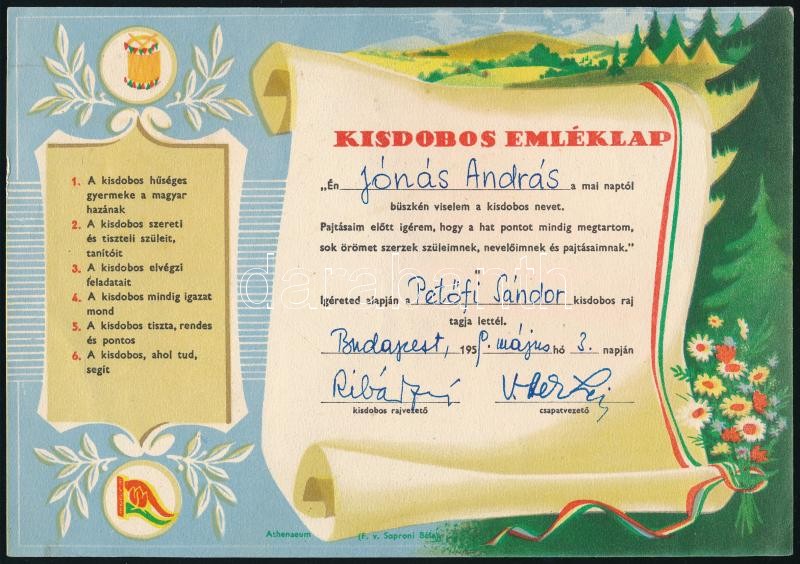 1. A kisdobos hűséges
gyermeke a magyar
hazának
2. A kisdobos szereti
és tiszteli szüleit,
tanítóit
3. A kisdobos elvégzi
feladatait
4. A kisdobos mindig igazat
mond
5. A kisdobos tiszta, rendes
és pontos
6. A kisdobos, ahol tud,
segít
KISDOBOS EMLÉKLAP
„Én Jónás András a mai naptól
büszkén viselem a kisdobos nevet.
Pajtásaim előtt igérem, hogy a hat pontot mindig megtartom,
sok örömet szerzek szüleimnek, nevelőimnek és pajtásaimnak.”
Igéreted alapján a Petőfi Sándor kisdobos raj
tagja lettél.
Budapest, 195 május hó 3. napján
kisdobos rajvezető csapatvezető
Athenaeum (F. v. Soproni Béla)
darabanth